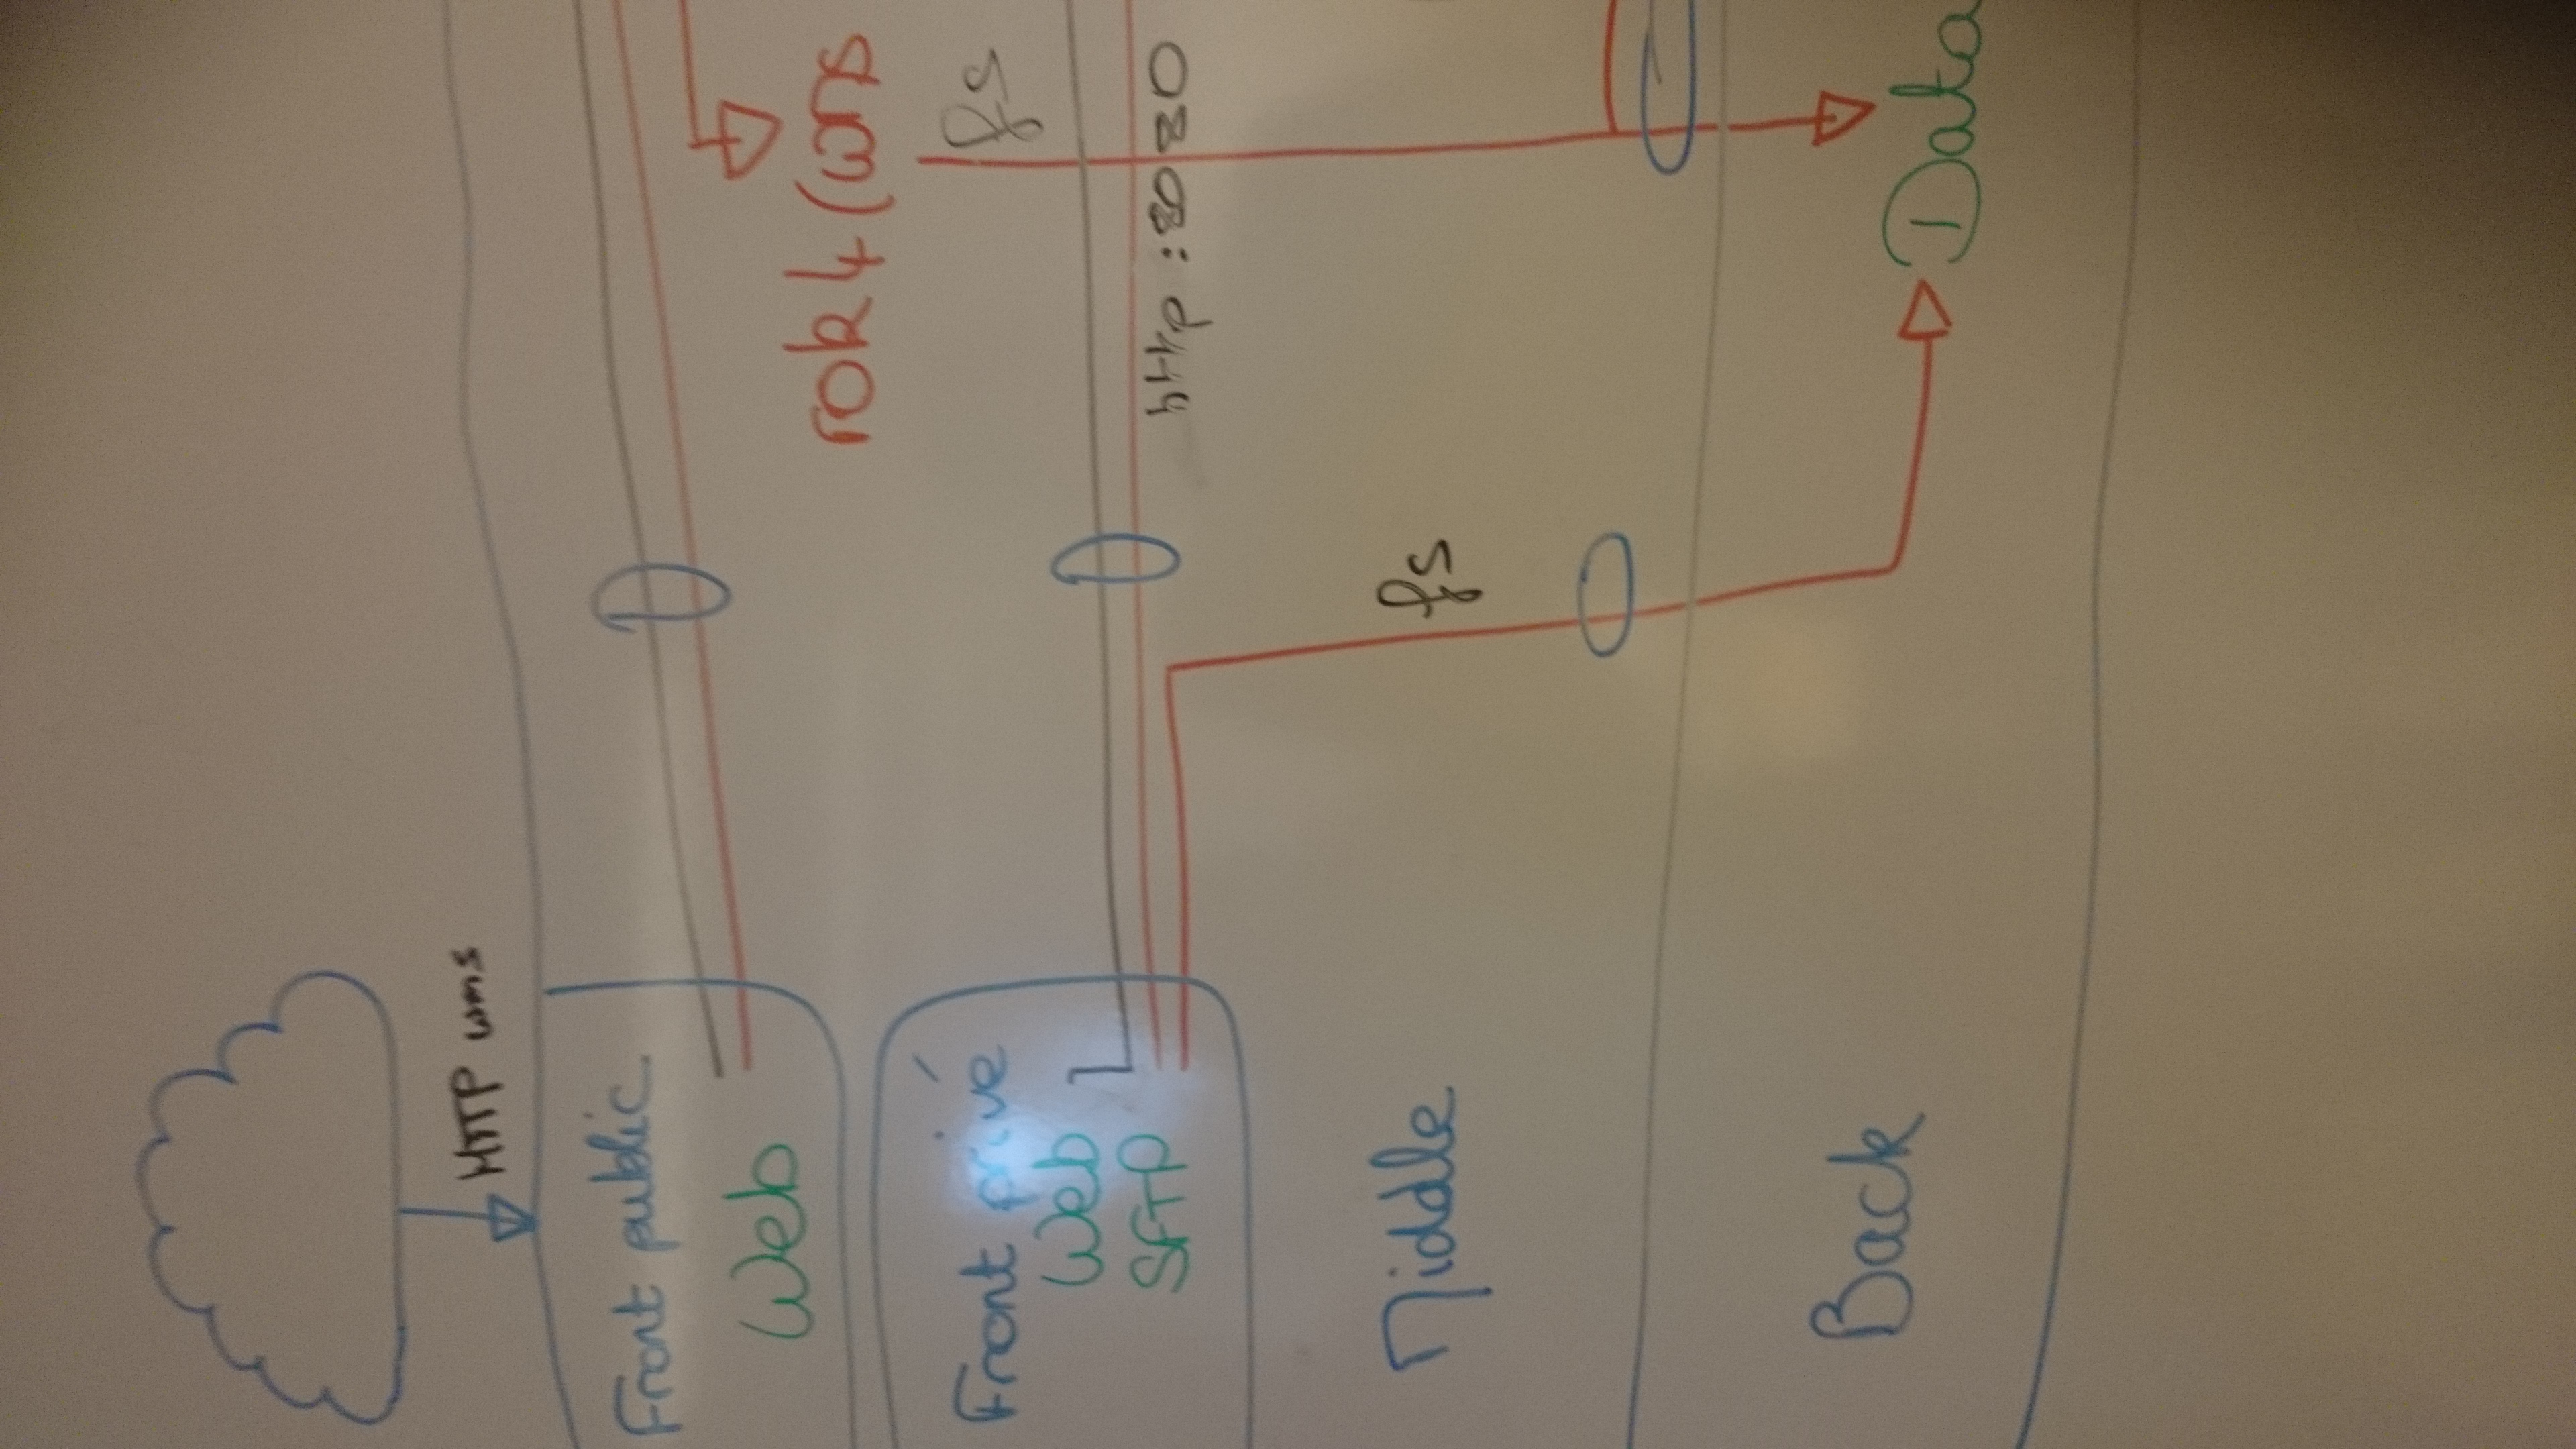 HTTP wms
Front public
Web
rok4 (wms
fs
Front privé
Web
SFTP
http :8080
Middle
fs
Back
Data